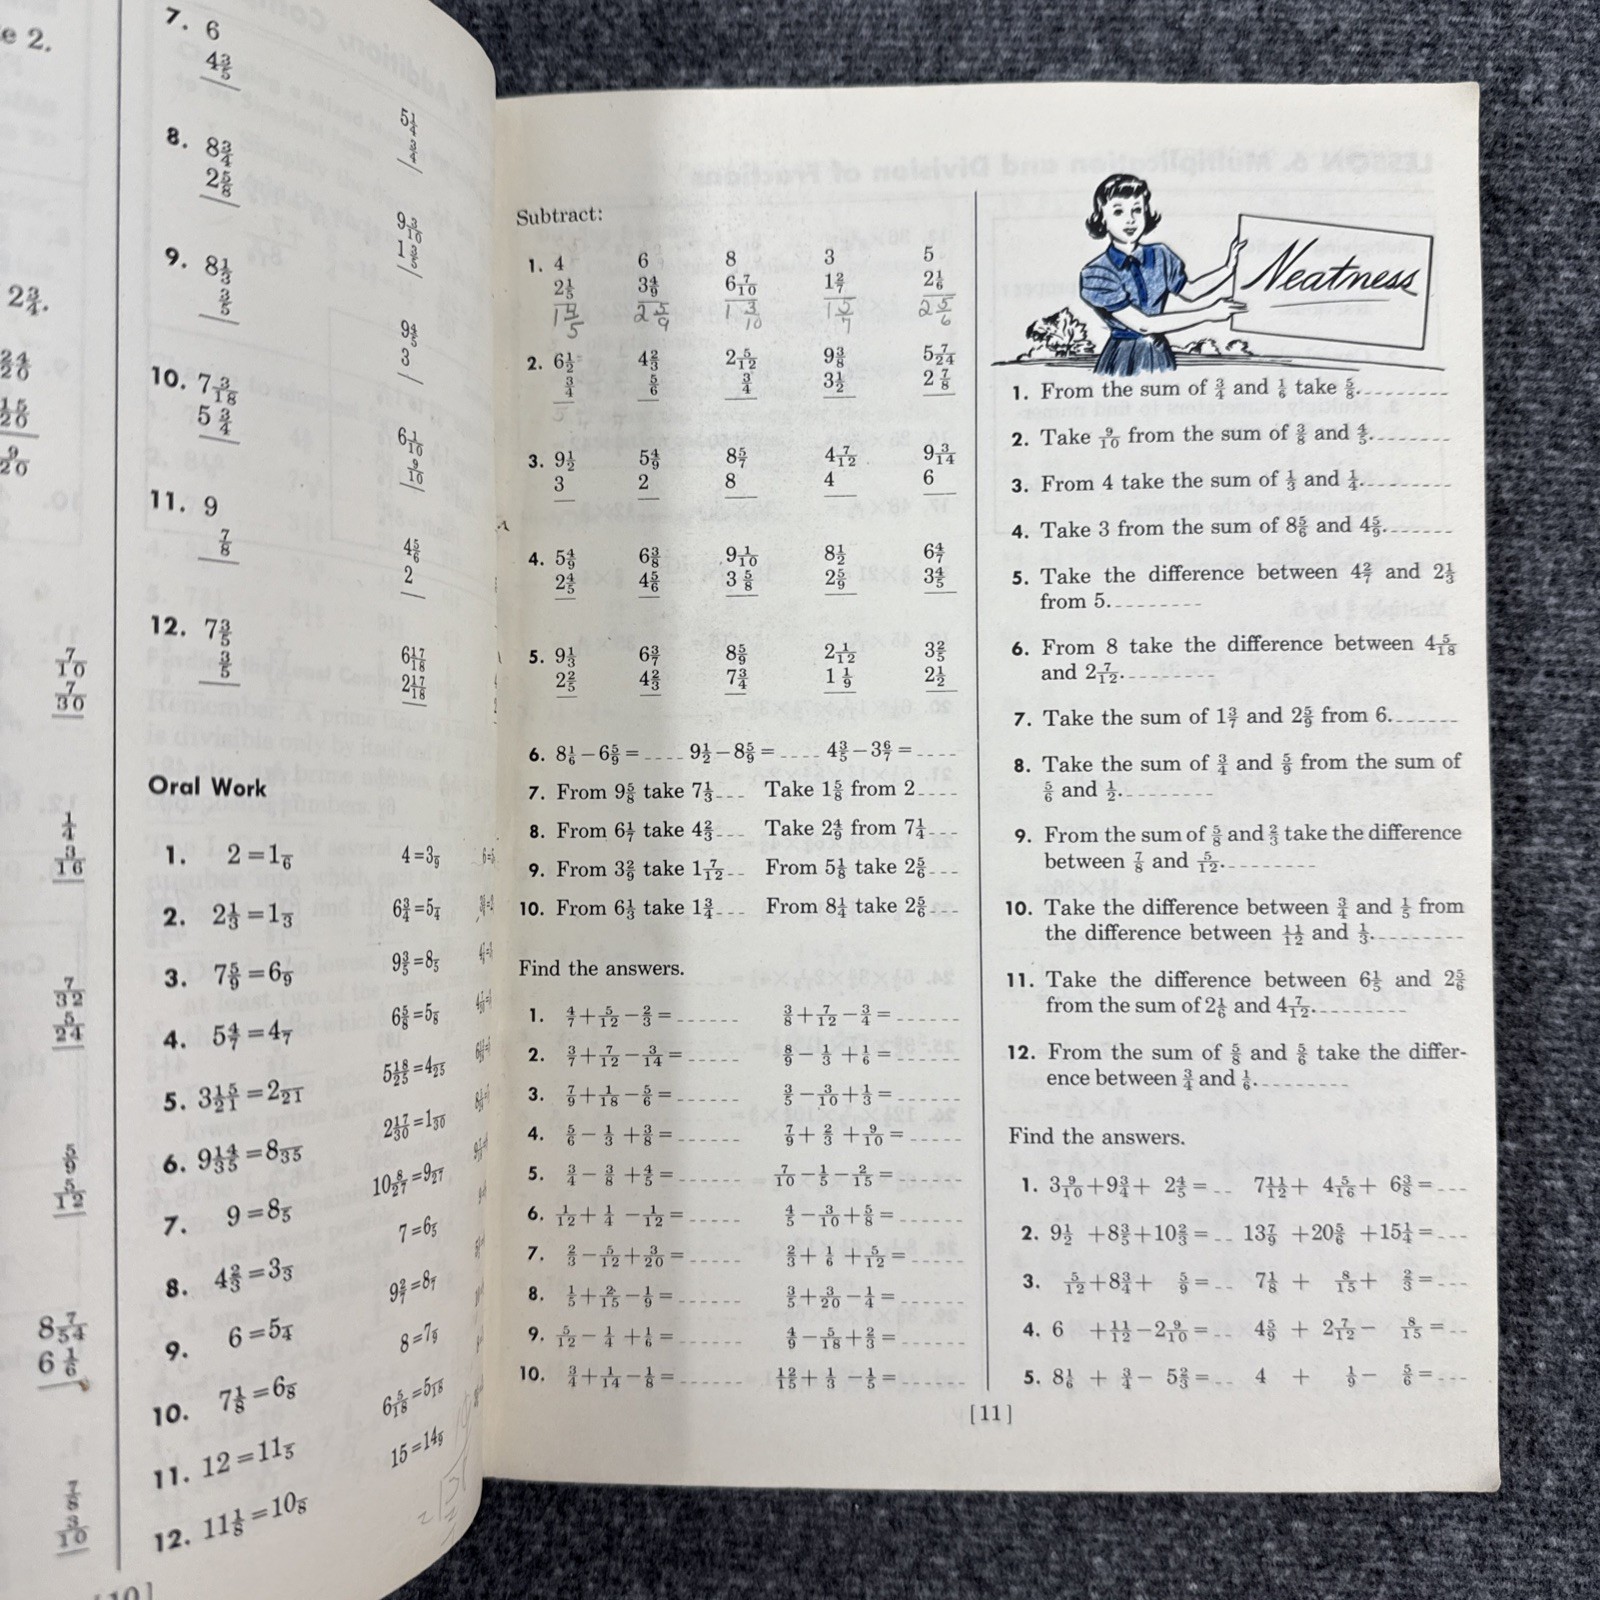 e 2.
2 3/4.
24/20
15/20
9/20
7/10
7/30
1/4
3/16
7/32
5/24
5/9
5/12
8 7/54
6 1/6
7/8
3/10
7. 6
4 3/5
5 1/4
3/4
8. 8 3/4
2 5/8
9 3/10
1 3/5
9. 8 1/3
3/5
9 4/5
3
10. 7 3/18
5 3/4
6 1/10
9/10
11. 9
7/8
4 5/6
2
12. 7 3/5
3/5
6 17/18
2 17/18
Oral Work
1. 2 = 1 /6 4 = 3 /9
2. 2 1/3 = 1 /3 6 3/4 = 5 /4
3. 7 5/9 = 6 /9 9 3/5 = 8 /5
4. 5 4/7 = 4 /7 6 5/8 = 5 /8
5. 3 15/21 = 2 /21 5 18/25 = 4 /25
6. 9 14/35 = 8 /35 2 17/30 = 1 /30
10 8/27 = 9 /27
7. 9 = 8 /5 7 = 6 /5
8. 4 2/3 = 3 /3 9 2/7 = 8 /7
9. 6 = 5 /4 8 = 7 /9
10. 7 1/8 = 6 /8 6 5/18 = 5 /18
11. 12 = 11 /5 15 = 14 /9
12. 11 1/8 = 10 /8
Subtract:
1. 4 6 8 3 5
2 1/5 3 4/9 6 7/10 1 2/7 2 1/6
1 4/5 2 5/9 1 3/10 1 5/7 2 5/6
2. 6 1/2 4 2/3 2 5/12 9 3/8 5 7/24
3/4 5/6 3/4 3 1/2 2 7/8
3. 9 1/2 5 4/9 8 5/7 4 7/12 9 3/14
3 2 8 4 6
4. 5 4/9 6 3/8 9 1/10 8 1/2 6 4/7
2 4/5 4 5/6 3 5/8 2 5/9 3 4/5
5. 9 1/3 6 3/7 8 5/9 2 1/12 3 2/5
2 2/5 4 2/3 7 3/4 1 1/9 2 1/2
6. 8 1/6 − 6 5/9 = ---- 9 1/2 − 8 5/9 = ---- 4 3/5 − 3 6/7 = ----
7. From 9 5/8 take 7 1/3--- Take 1 5/8 from 2----
8. From 6 1/7 take 4 2/3--- Take 2 4/9 from 7 1/4---
9. From 3 2/9 take 1 7/12-- From 5 1/8 take 2 5/6---
10. From 6 1/3 take 1 3/4--- From 8 1/4 take 2 5/6---
Find the answers.
1. 4/7 + 5/12 − 2/3 = ------ 3/8 + 7/12 − 3/4 = ------
2. 3/7 + 7/12 − 3/14 = ------ 8/9 − 1/3 + 1/6 = ------
3. 7/9 + 1/18 − 5/6 = ------ 3/5 − 3/10 + 1/3 = ------
4. 5/6 − 1/3 + 3/8 = ------ 7/9 + 2/3 + 9/10 = ------
5. 3/4 − 3/8 + 4/5 = ------ 7/10 − 1/5 − 2/15 = ------
6. 1/12 + 1/4 − 1/12 = ------ 4/5 − 3/10 + 5/8 = ------
7. 2/3 − 5/12 + 3/20 = ------ 2/3 + 1/6 + 5/12 = ------
8. 1/5 + 2/15 − 1/9 = ------ 3/5 + 3/20 − 1/4 = ------
9. 5/12 − 1/4 + 1/6 = ------ 4/9 − 5/18 + 2/3 = ------
10. 3/4 + 1/14 − 1/8 = ------ 12/15 + 1/3 − 1/5 = ------
Neatness
1. From the sum of 3/4 and 1/6 take 5/8.--------
2. Take 9/10 from the sum of 3/8 and 4/5.-------
3. From 4 take the sum of 1/3 and 1/4.--------
4. Take 3 from the sum of 8 5/6 and 4 5/9.------
5. Take the difference between 4 2/7 and 2 1/3
from 5.--------
6. From 8 take the difference between 4 5/18
and 2 7/12.--------
7. Take the sum of 1 3/7 and 2 5/9 from 6.------
8. Take the sum of 3/4 and 5/9 from the sum of
5/6 and 1/2.--------
9. From the sum of 5/8 and 2/3 take the difference
between 7/8 and 5/12.--------
10. Take the difference between 3/4 and 1/5 from
the difference between 11/12 and 1/3.--------
11. Take the difference between 6 1/5 and 2 5/6
from the sum of 2 1/6 and 4 7/12.--------
12. From the sum of 5/8 and 5/6 take the differ-
ence between 3/4 and 1/6.--------
Find the answers.
1. 3 9/10 + 9 3/4 + 2 4/5 = -- 7 11/12 + 4 5/16 + 6 3/8 = ---
2. 9 1/2 + 8 3/5 + 10 2/3 = -- 13 7/9 + 20 5/6 + 15 1/4 = ---
3. 5/12 + 8 3/4 + 5/9 = -- 7 1/8 + 8/15 + 2/3 = ---
4. 6 + 11/12 − 2 9/10 = -- 4 5/9 + 2 7/12 − 8/15 = --
5. 8 1/6 + 3/4 − 5 2/3 = -- 4 + 1/9 − 5/6 = ---
[ 11 ]